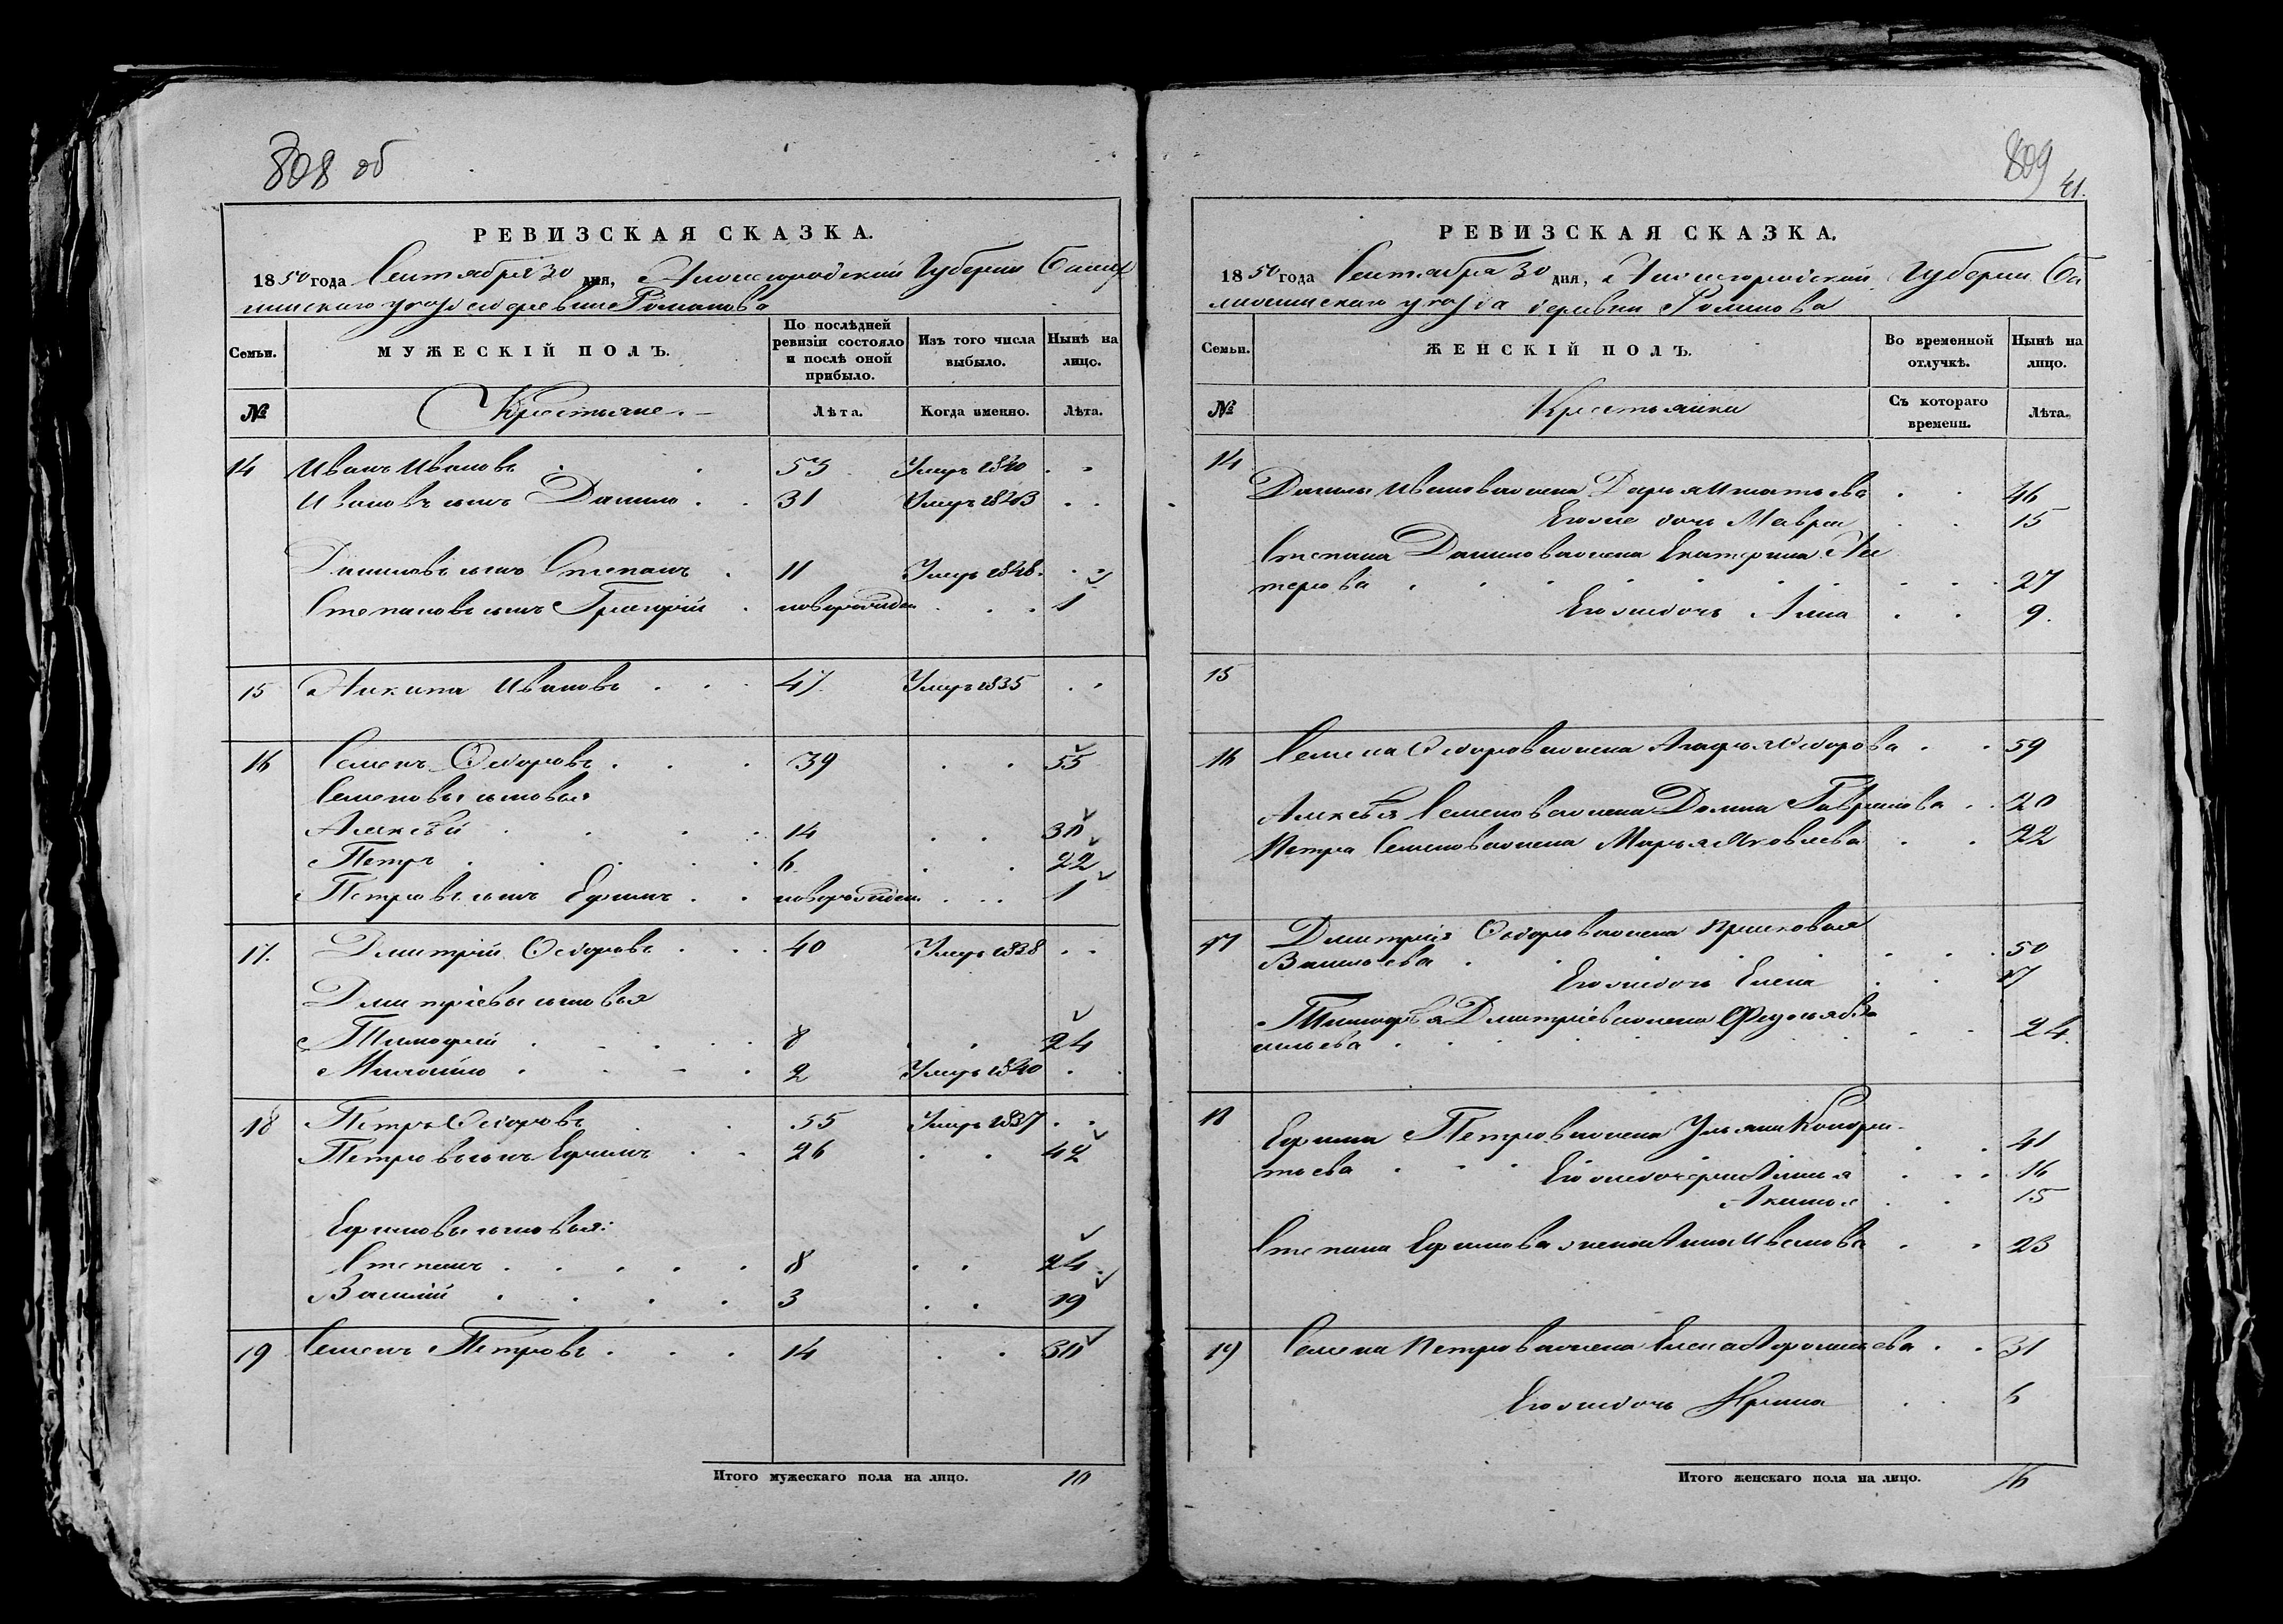 808 об
РЕВИЗСКАЯ СКАЗКА.
1850 года Сентября 30 дня, Нижегородской Губернии Балах
нинскаго уезда деревни Романова
Семьи.
МУЖЕСКІЙ ПОЛЪ.
По послѣдней ревизіи состояло и послѣ оной прибыло.
Изъ того числа выбыло.
Нынѣ на лицо.
№
Крестьяне.
Лѣта.
Когда именно.
Лѣта.
14 Иванъ Ивановъ 53 Умеръ 1840
Ивановъ сынъ Данило 31 Умеръ 1843
Даниловъ сынъ Степанъ 11 Умеръ 1848.
Степановъ сынъ Григорій новорожден 1
15 Никита Ивановъ 47 Умеръ 1835
16 Семенъ Ѳедоровъ 39 55
Семеновы сыновья
Алексѣй 14 30
Петръ 6 22
Петровъ сынъ Ефимъ новорожден. 1
17. Дмитрій Ѳедоровъ 40 Умеръ 1838
Дмитріевы сыновья
Тимофей 8 24
Михайло 2 Умеръ 1840
18 Петръ Ѳедоровъ 55 Умеръ 1837
Петровъ сынъ Ефимъ 26 42
Ефимовы сыновья:
Степанъ 8 24
Василій 3 19
19 Семенъ Петровъ 14 30
Итого мужескаго пола на лицо. 10
809
41.
РЕВИЗСКАЯ СКАЗКА.
1850 года Сентября 30 дня, Нижегородской Губернии Ба
лахнинскаго уезда деревни Романова
Семьи.
ЖЕНСКІЙ ПОЛЪ.
Во временной отлучкѣ.
Нынѣ на лицо.
№
Крестьянки
Съ котораго времени.
Лѣта.
14
Данилы Иванова жена Дарья Игнатьева 46
Его же дочь Мавра 15
Степана Данилова жена Екатерина Не
терова 27
Его же дочь Анна 9.
15
16 Семена Ѳедорова жена Агафья Ѳедорова 59
Алексѣя Семенова жена Домна Гаврилова 20
Петра Семенова жена Марья Яковлева 22
17 Дмитрія Ѳедорова жена Прасковья
Васильева 50
Его же дочь Елена 17
Тимофѣя Дмитріева жена Федосья Ва
сильева 24.
18
Ефима Петрова жена Ульяна Кондра-
тьева 41
Его же дочери 16
Акинья 15
Степана Ефимова жена Анна Иванова 23
19 Семена Петрова жена Елена 31
Его же дочь Ирина 6
Итого женскаго пола на лицо. 16